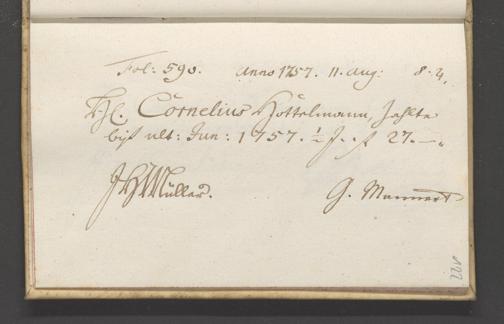 Fol: 590. Anno 1757. 11. Aug: 8.
H. Cornelius Hottelmann, zahlte
biß ult: Jun: 1757. ½ J. . f 27. —
JH Müller. G. Mannert
122